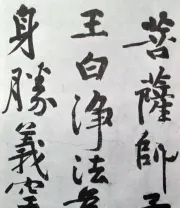 菩薩師子
王白淨法
身勝義空